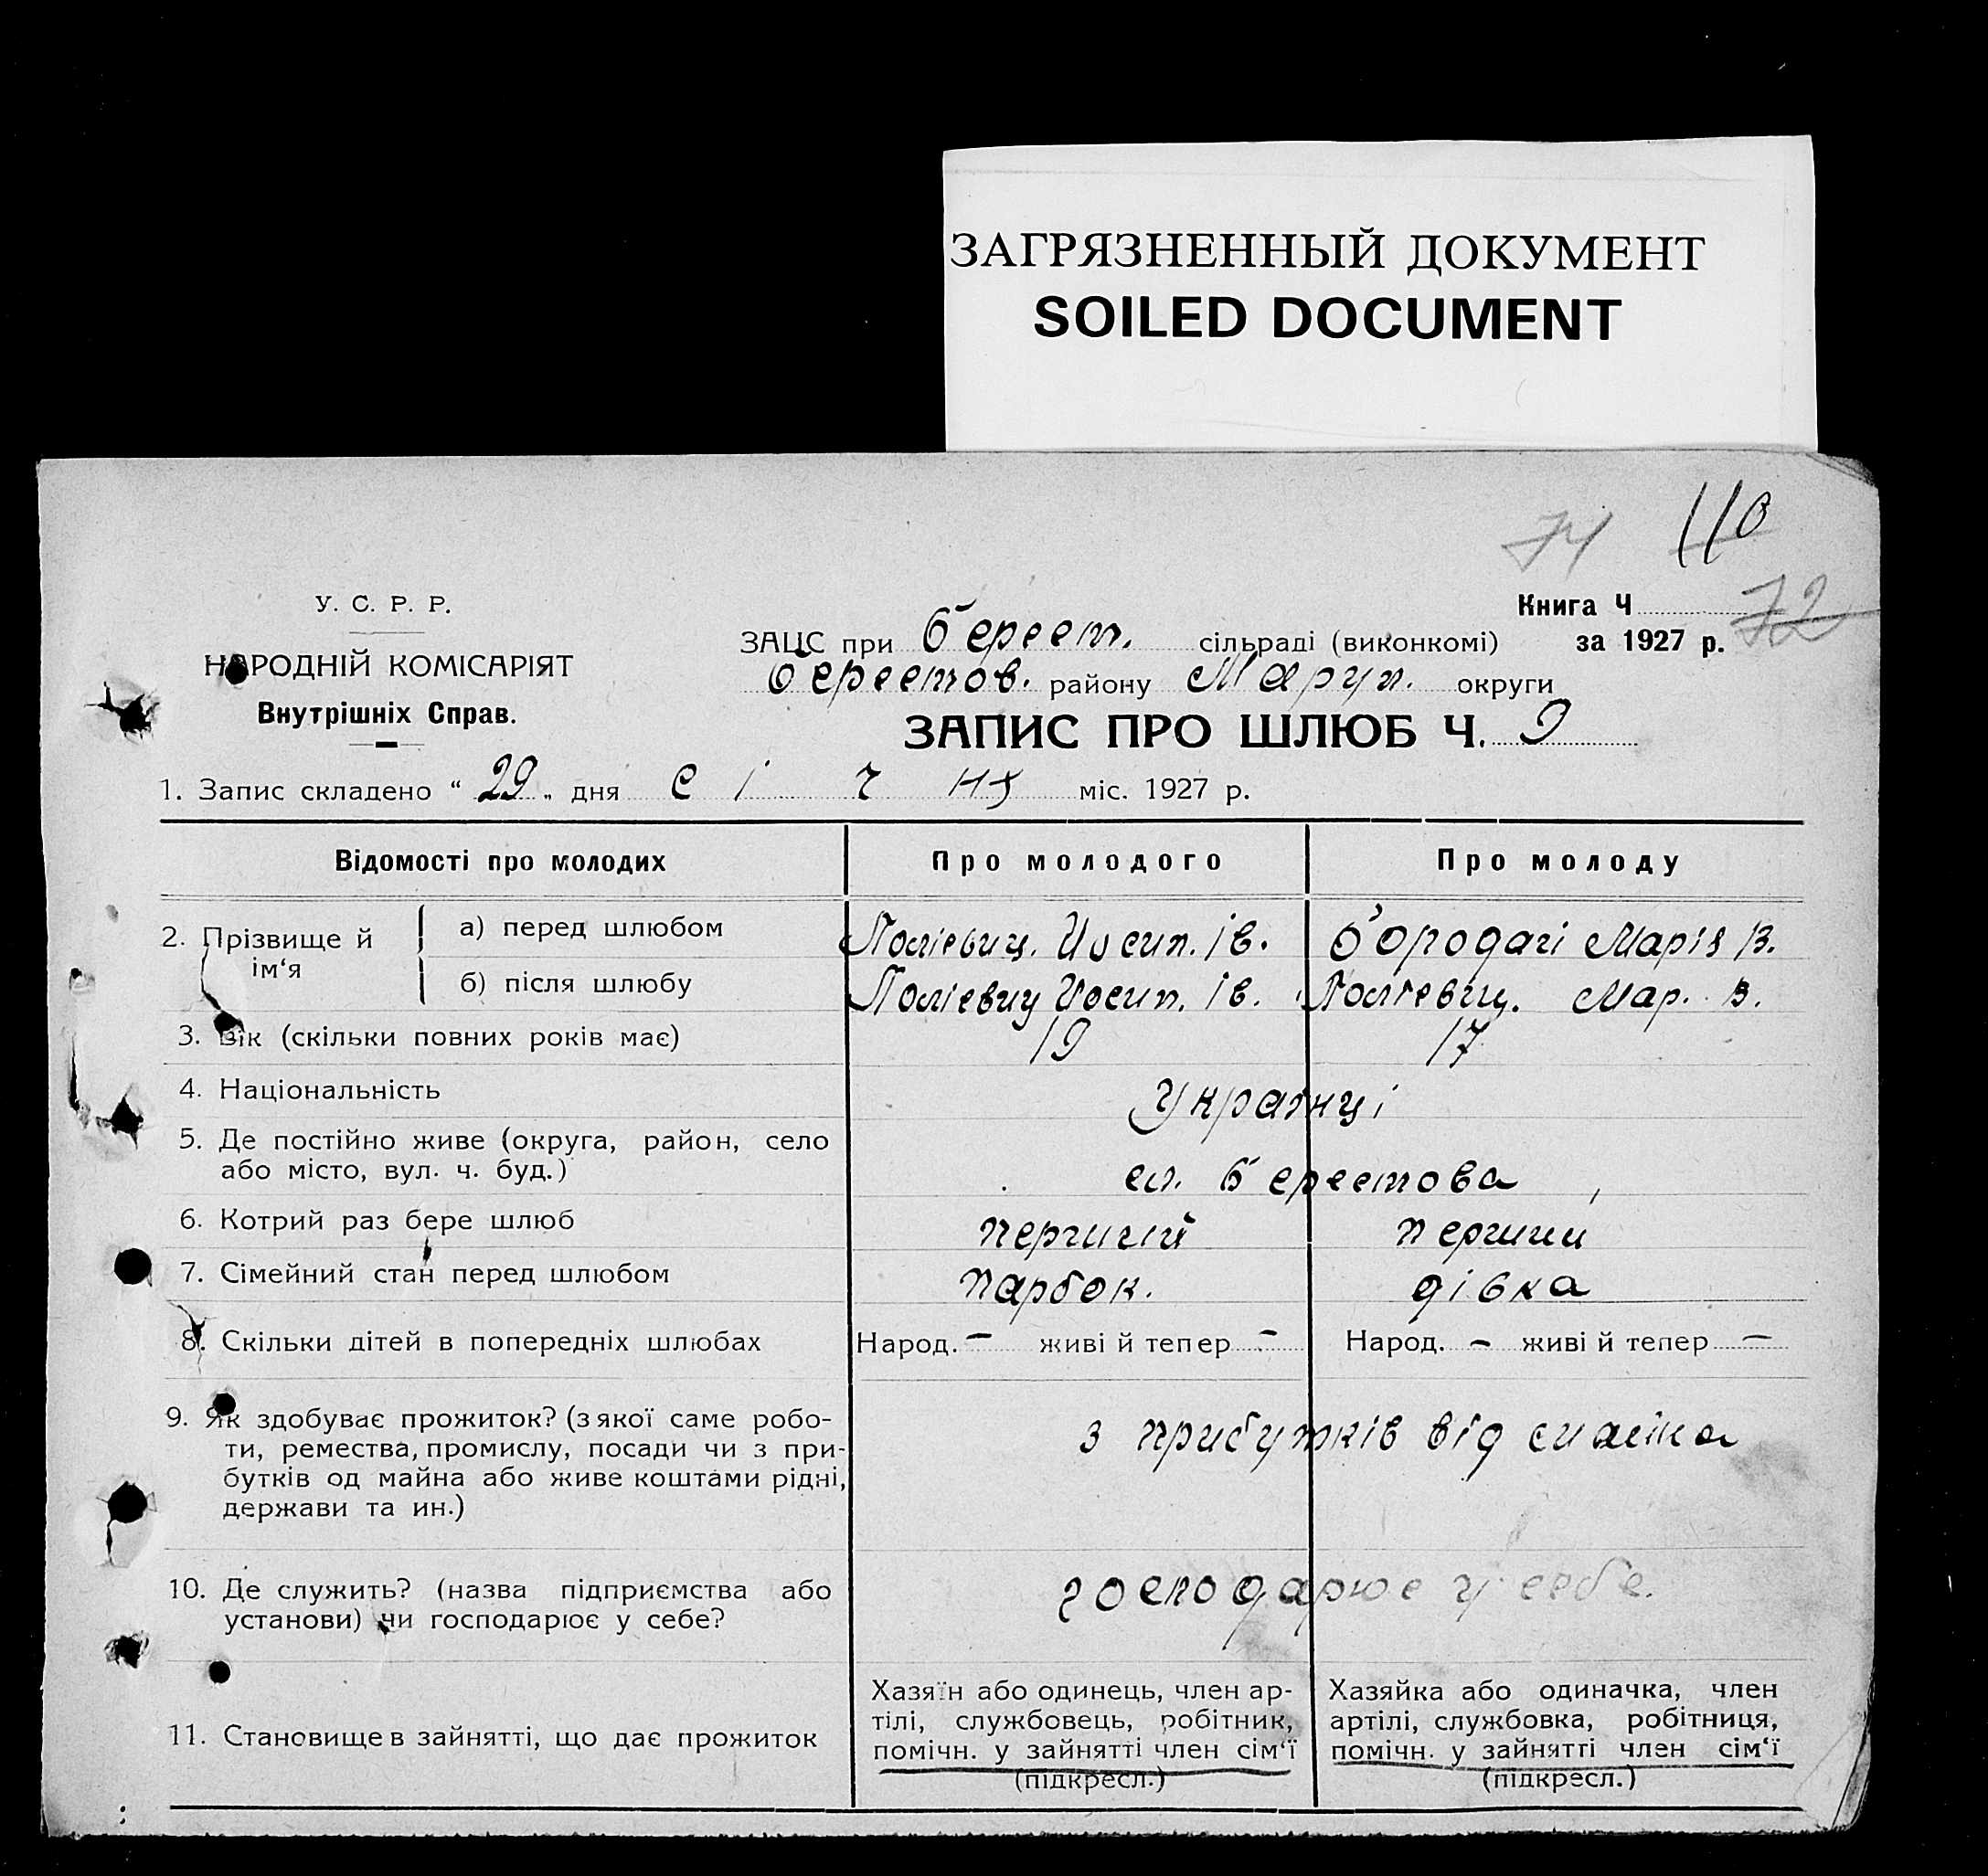 ЗАГРЯЗНЕННЫЙ ДОКУМЕНТ
SOILED DOCUMENT
74 110
У. С. Р. Р.
НАРОДНІЙ КОМІСАРІЯТ
Внутрішніх Справ.
Книга Ч. 72
за 1927 р.
ЗАЦС при Берест. сільраді (виконкомі)
Берестов. району Маруп. округи
ЗАПИС ПРО ШЛЮБ Ч. 9
1. Запис складено “ 29 „ дня січня міс. 1927 р.
Відомості про молодих Про молодого Про молоду
2. Прізвище й ім‘я
а) перед шлюбом Йосип. Ів. Марія В.
б) після шлюбу Йосип. Ів. Мар. В.
3. Вік (скільки повних років має) 19 17
4. Національність Українці
5. Де постійно живе (округа, район, село
або місто, вул. ч. буд.) сл. Берестова
6. Котрий раз бере шлюб перший перший
7. Сімейний стан перед шлюбом парубок. дівка
8. Скільки дітей в попередніх шлюбах Народ. — живі й тепер — Народ. — живі й тепер —
9. Як здобуває прожиток? (з якої саме робо-
ти, ремества, промислу, посади чи з при-
бутків од майна або живе коштами рідні,
держави та ин.)
з прибутків від
10. Де служить? (назва підприємства або
установи) чи господарює у себе?
господарює у себе.
11. Становище в зайнятті, що дає прожиток
Хазяїн або одинець, член ар-
тілі, службовець, робітник,
помічн. у зайнятті член сім‘ї
(підкресл.)
Хазяйка або одиначка, член
артілі, службовка, робітниця,
помічн. у зайнятті член сім‘ї
(підкресл.)